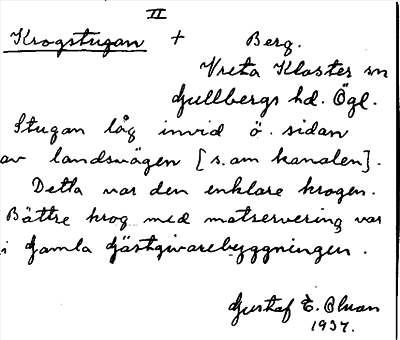 II
Krogstugan + Berg.
Vreta Kloster sn
Gullbergs hd. Ögl.
Stugan låg invid ö. sidan
av landsvägen [s. om kanalen].
Detta var den enklare krogen.
Bättre krog med matservering var
i Gamla Gästgivarebyggningen.
Gustaf E. Olsson
1937.